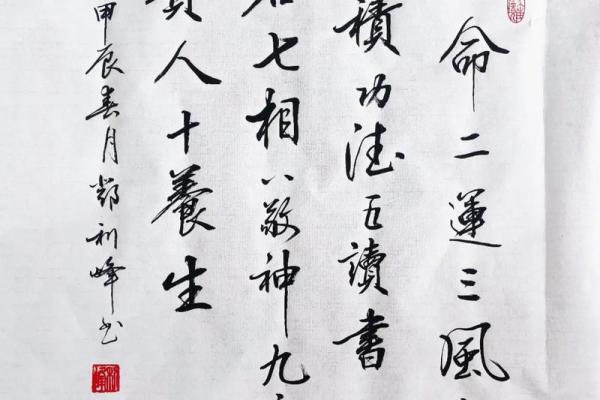 命二運三風
積功德五讀書
名七相八敬神九
貴人十養生
甲辰春月利峰书